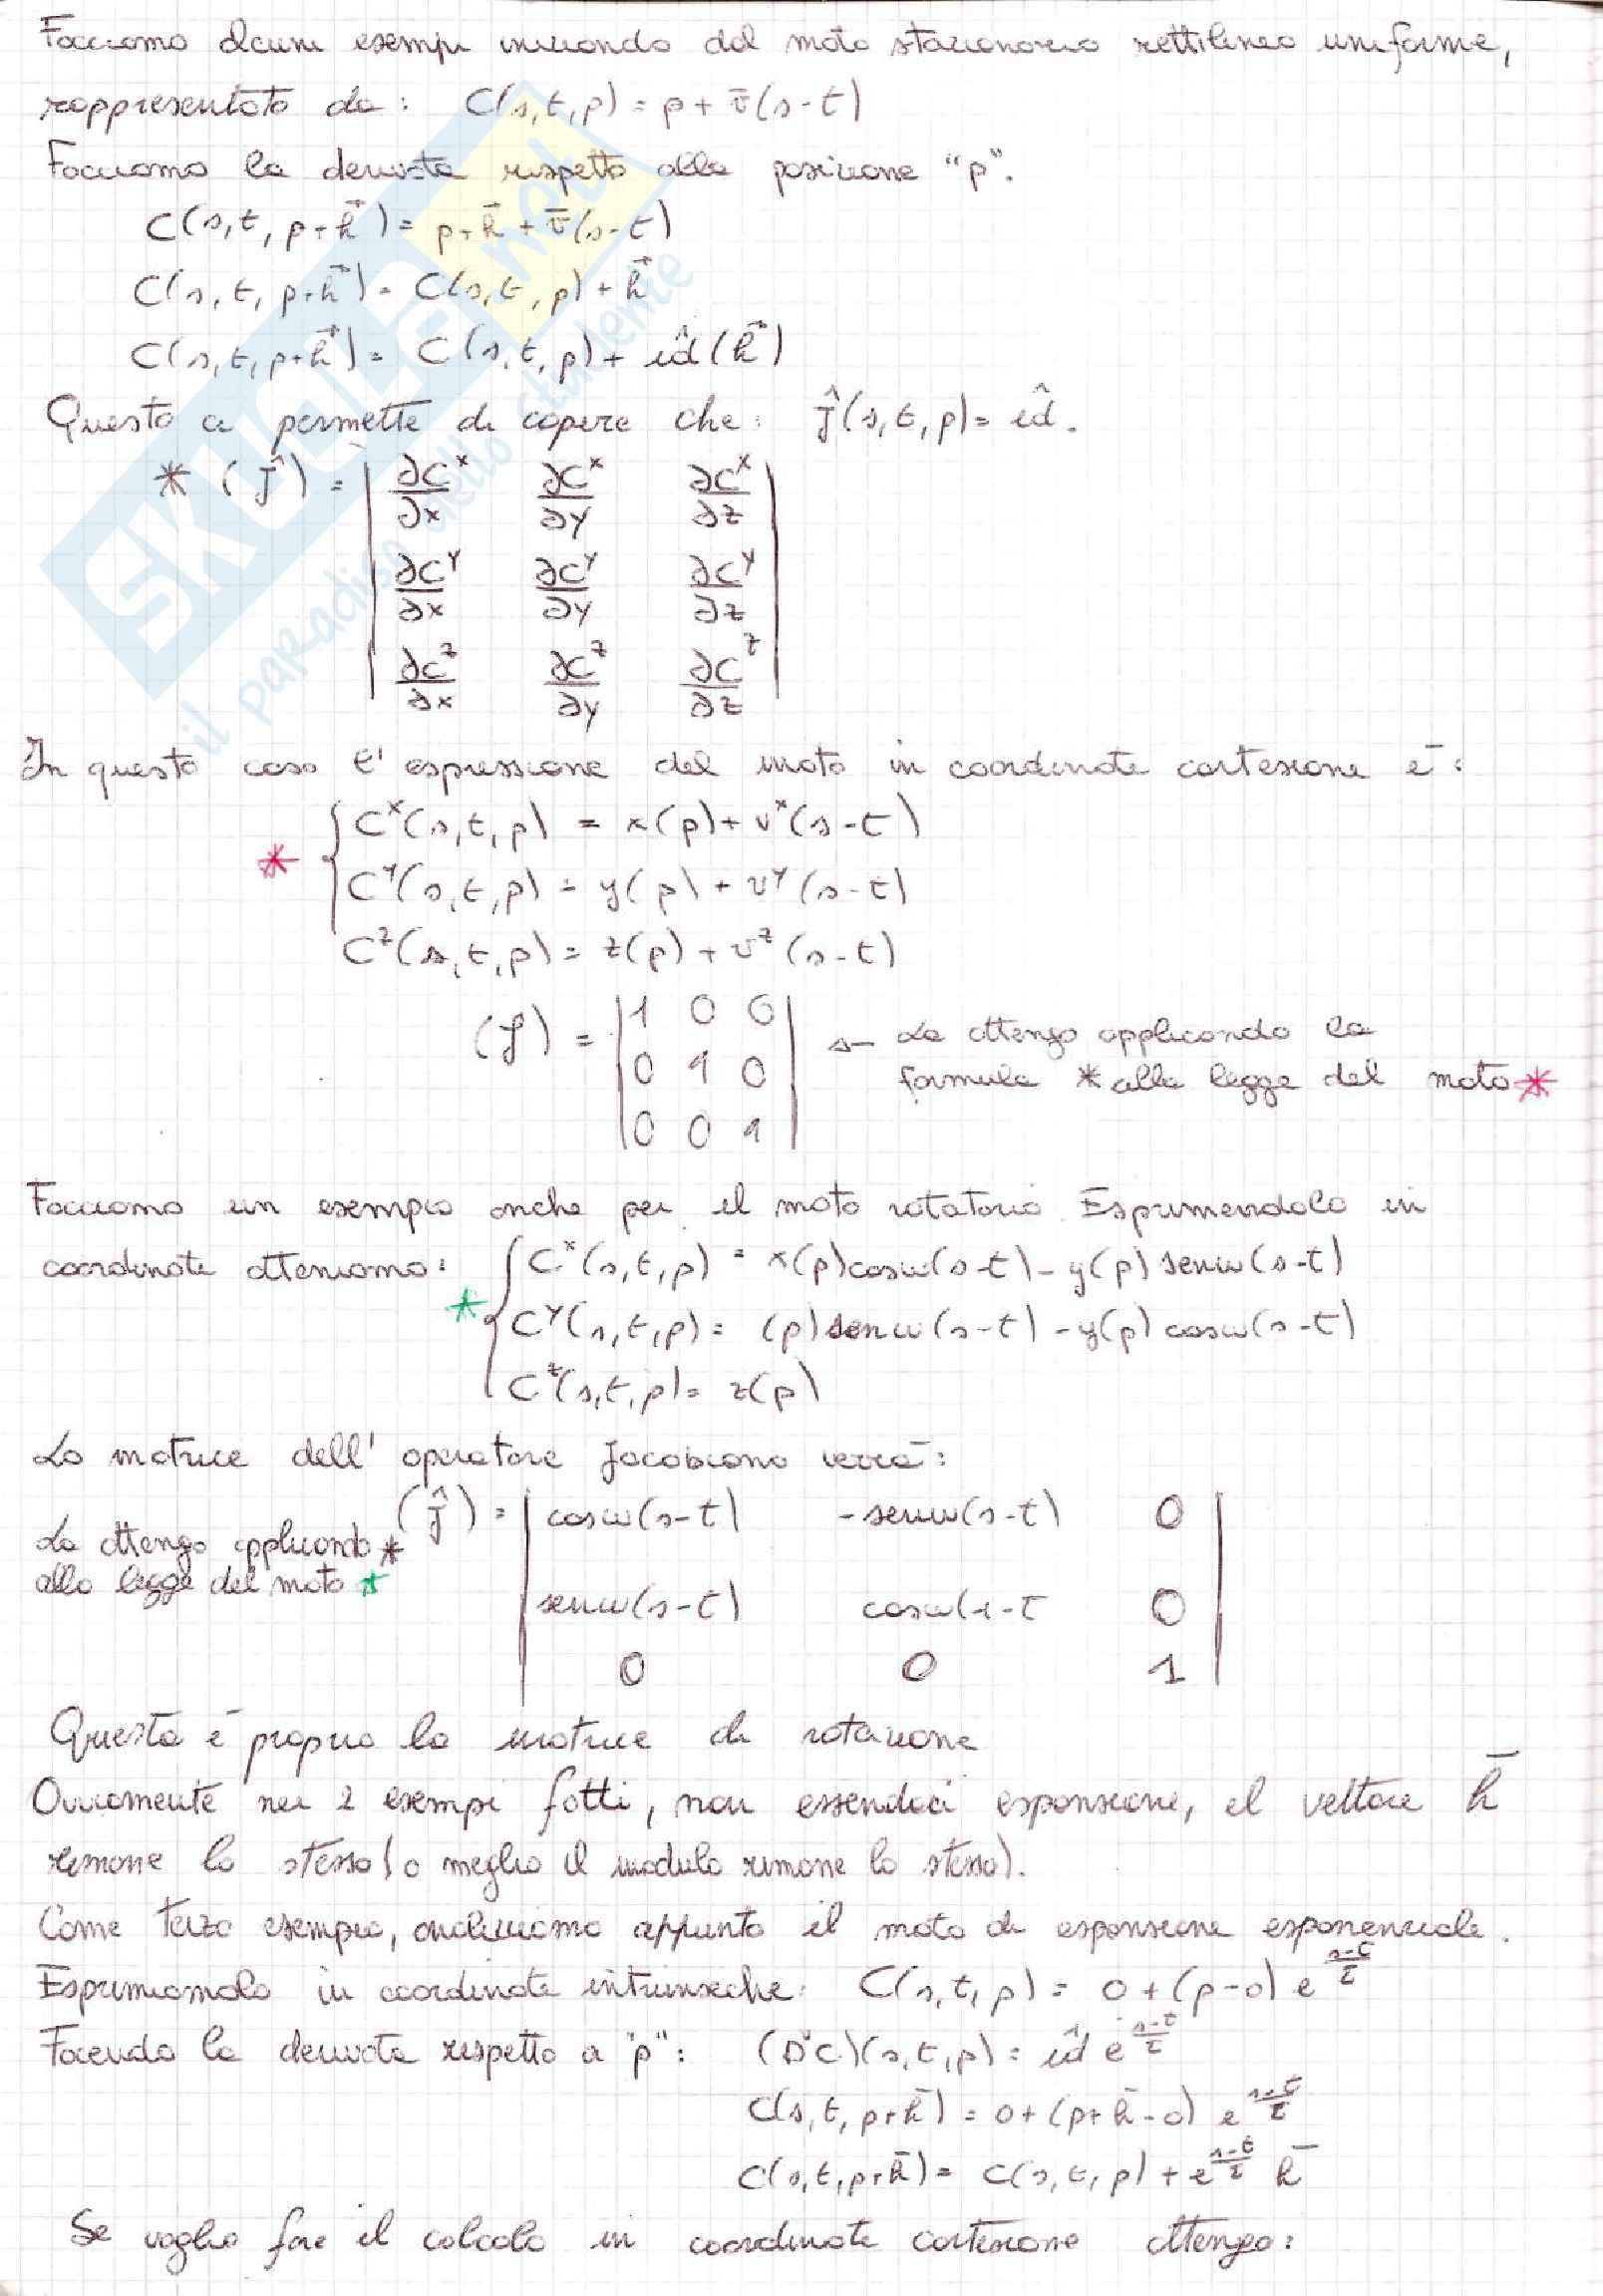 Facciamo alcuni esempi iniziando dal moto stazionario rettilineo uniforme,
rappresentato da: C(s,t,p) = p + v̄(s-t)
Facciamo la derivata rispetto alla posizione "p".
C(s,t,p+h⃗) = p+h̄+v̄(s-t)
C(s,t,p+h⃗) = C(s,t,p)+h⃗
C(s,t,p+h⃗) = C(s,t,p)+ îd(h⃗)
Questo ci permette di capire che: Ĵ(s,t,p) = îd.
* (Ĵ) = | ∂Cˣ/∂x ∂Cˣ/∂y ∂Cˣ/∂z |
| ∂Cʸ/∂x ∂Cʸ/∂y ∂Cʸ/∂z |
| ∂Cᶻ/∂x ∂Cᶻ/∂y ∂Cᶻ/∂z |
In questo caso l'espressione del moto in coordinate cartesiane è:
Cˣ(s,t,p) = x(p)+vˣ(s-t)
* { Cʸ(s,t,p) = y(p)+vʸ(s-t)
Cᶻ(s,t,p) = z(p)+vᶻ(s-t)
(J) = | 1 0 0 | ← La ottengo applicando la
| 0 1 0 | formula * alla legge del moto *
| 0 0 1 |
Facciamo un esempio anche per il moto rotatorio. Esprimendolo in
coordinate otteniamo: { Cˣ(s,t,p) = x(p)cosω(s-t) - y(p)senω(s-t)
* Cʸ(s,t,p) = (p)senω(s-t) - y(p)cosω(s-t)
Cᶻ(s,t,p) = z(p)
La matrice dell'operatore Jacobiano verrà:
(Ĵ) = | cosω(s-t) -senω(s-t) 0 |
La ottengo applicando *
alla legge del moto *
| senω(s-t) cosω(s-t 0 |
| 0 0 1 |
Questa è proprio la matrice di rotazione
Ovviamente nei 2 esempi fatti, non essendoci espansione, il vettore h̄
rimane lo stesso (o meglio il modulo rimane lo stesso).
Come terzo esempio, analizziamo appunto il moto di espansione esponenziale.
Esprimiamolo in coordinate intrinseche: C(s,t,p) = o+(p-o) e^((s-t)/τ)
Facendo la derivata rispetto a "p": (ĎC)(s,t,p) = îd e^((s-t)/τ)
C(s,t,p+h̄) = o+(p+h̄-o) e^((s-t)/τ)
C(s,t,p+h̄) = C(s,t,p)+e^((s-t)/τ) h̄
Se voglio fare il calcolo in coordinate cartesiane ottengo:
SKUOLA.net
il paradiso dello studente